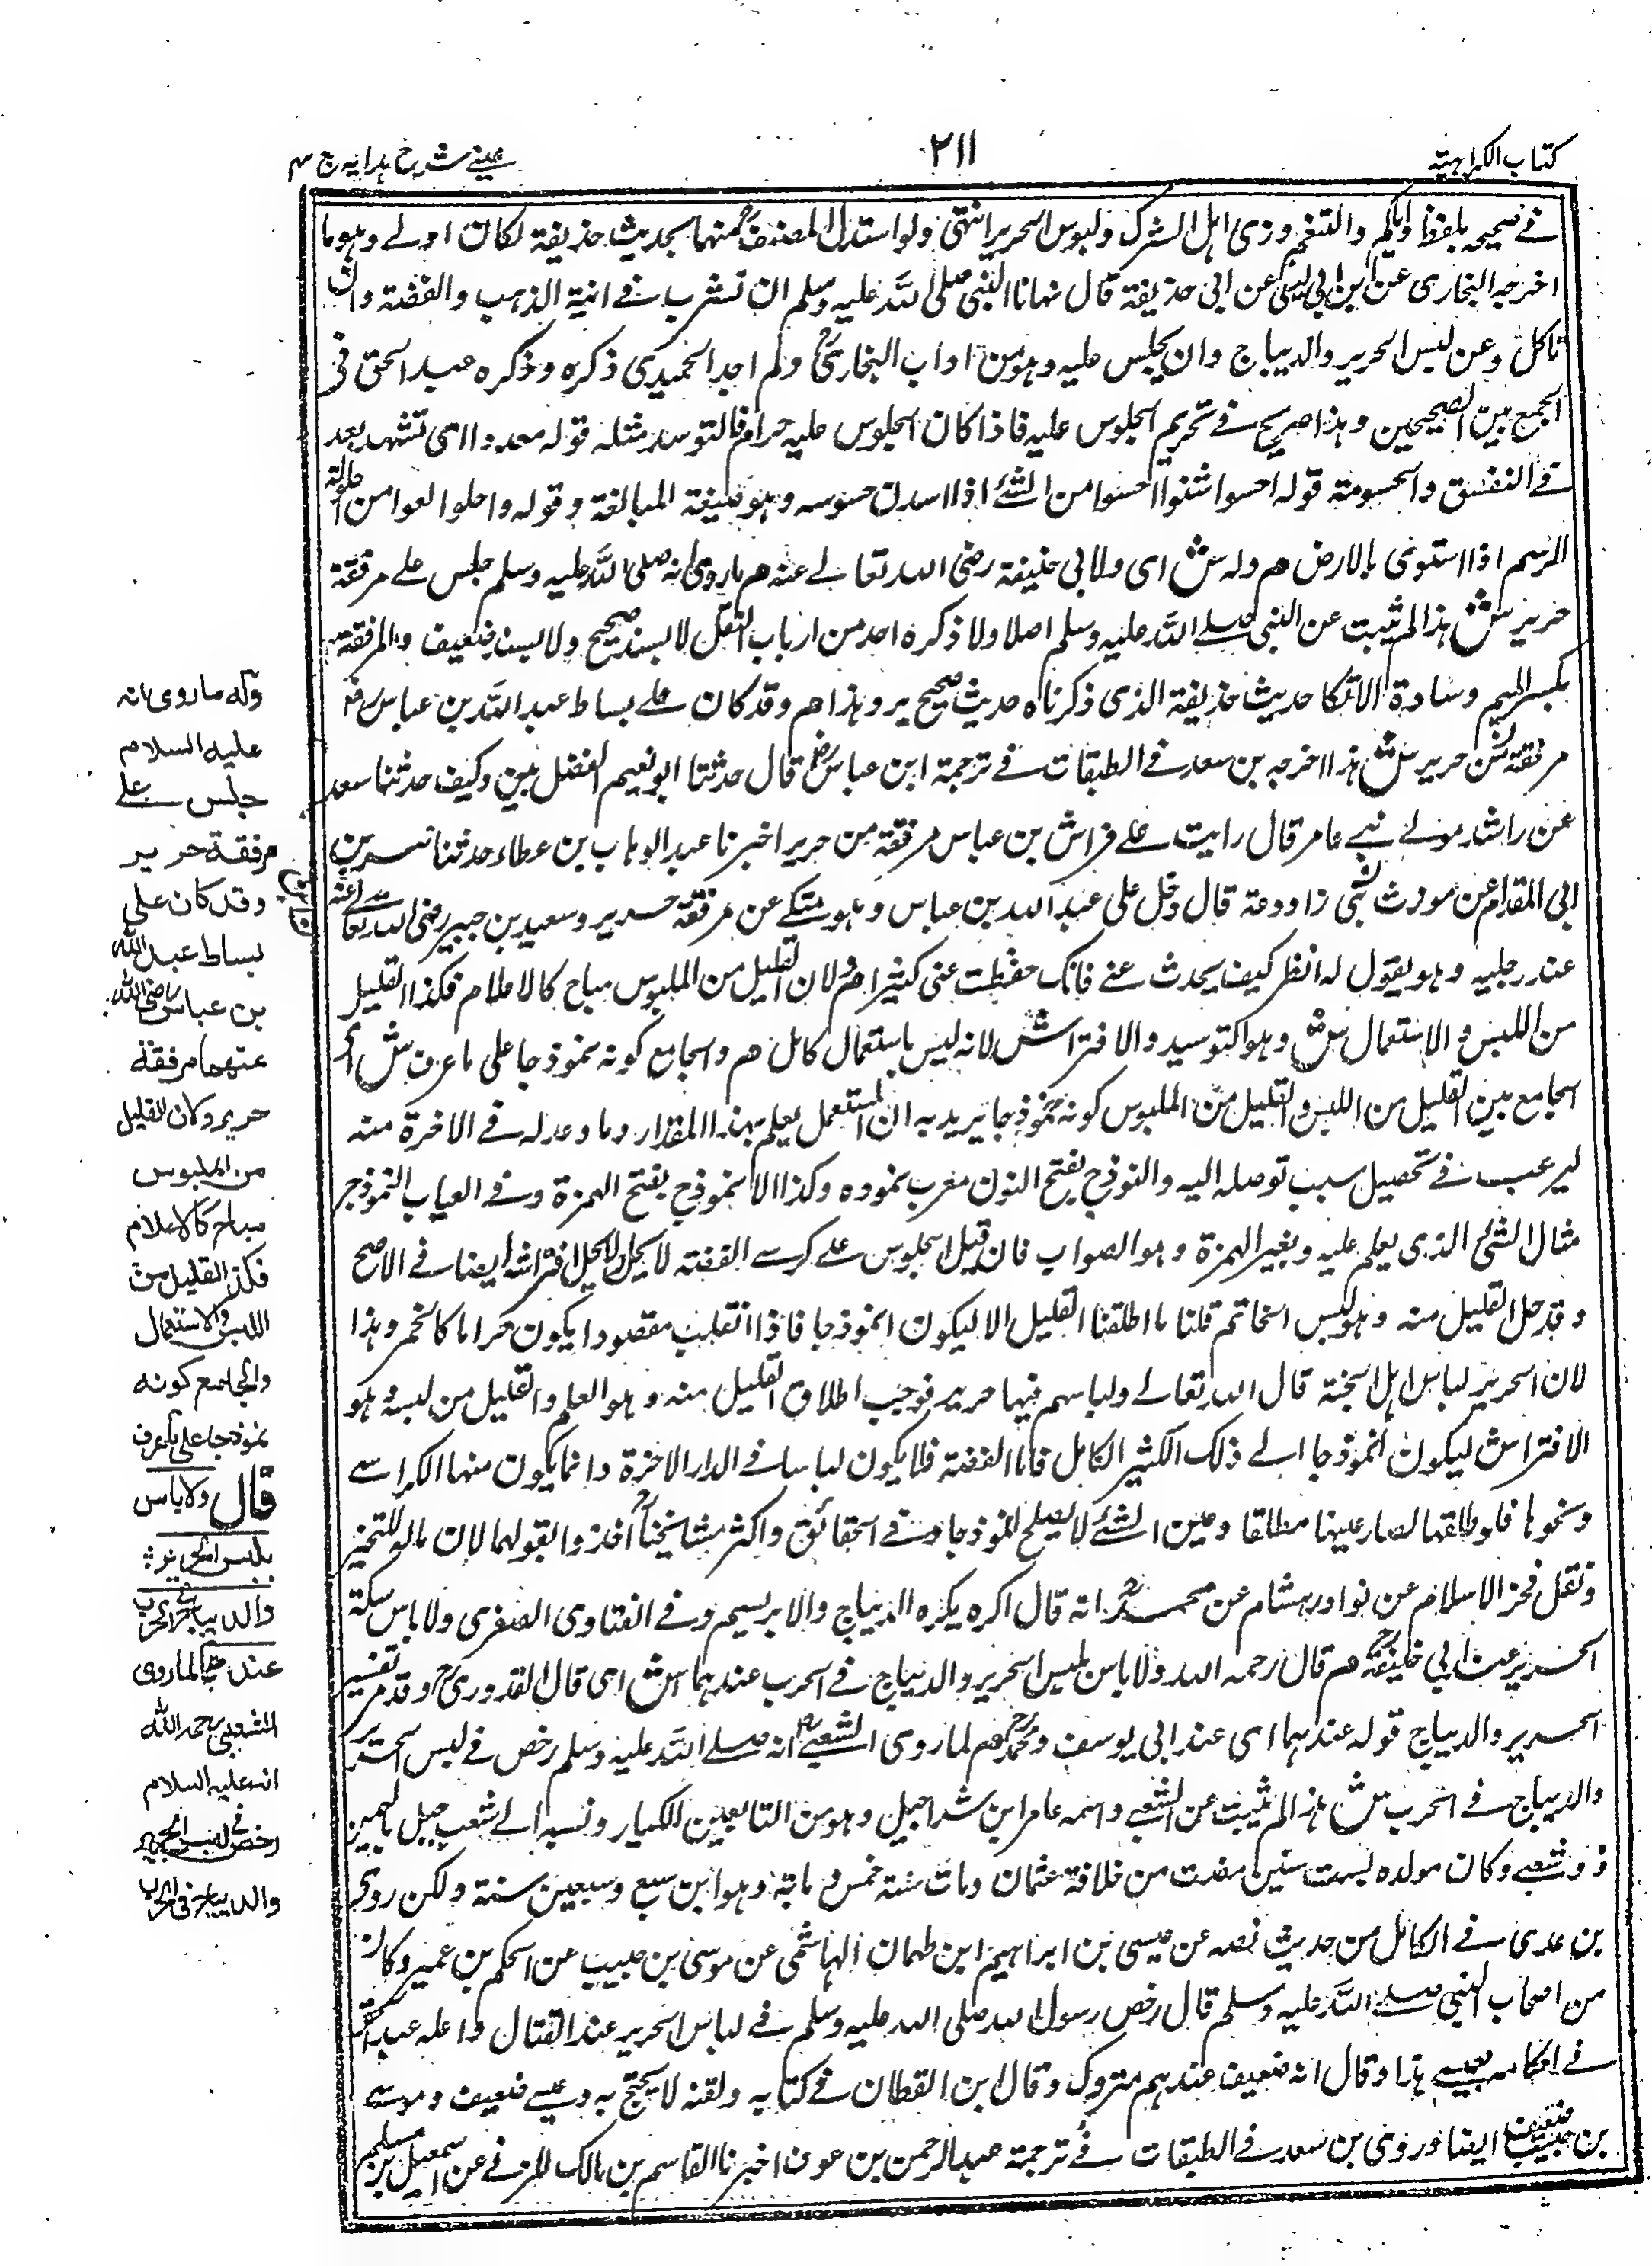 كتاب الكراهية
٢١١
عينے شرح ہدايه ج ٣
فے صحيحه بلفظ واياكم والتنعم وزى اہل الشرك ولبوس الحرير انتهى ولو استدل المصنف لمنهما بحديث حذيفة لكان اولے وہو ما
اخرجه البخارى عن ابن ابى ليلى عن ابى حذيفة قال نہانا النبى صلى اللہ عليه وسلم ان نشرب فے انية الذہب والفضة وان
ناكل وعن لبس الحرير والديباج وان يجلس عليه وہو من اداب البخارى ولم اجد الحميدى ذكره وذكره عبد الحق فى
الجمع بين الصحيحين وہذا صريح فے تحريم الجلوس عليه فاذا كان الجلوس عليه حرام فالتوسد مثله قوله معددا اى تشهد بعد
المرسم اذا استوى بالارض ھم وله ش اى ولابى حنيفة رضى اللہ تعالے عنه ھم ماروى انه صلى اللہ عليه وسلم جلس علے مرفقة
حرير ش ہذا لم يثبت عن النبى صلے اللہ عليه وسلم اصلا ولا ذكره احد من ارباب النقل لا بسند صحيح ولا بسند ضعيف والمرفقة
بكسر الميم وسادة الاتكا حديث حذيفة الذى ذكرناه حديث صحيح يرد ہذا ھم وقد كان علے بساط عبد اللہ بن عباس رض
مرفقة من حرير ش ہذا اخرجه بن سعد فے الطبقات فے ترجمة ابن عباس رض قال حدثنا ابو نعيم الفضل بين وكيف حدثنا سعد
عن راشد مولے بنے عامر قال رايت علے فراش بن عباس مرفقة من حرير اخبرنا عبد الوہاب بن عطاء حدثنا
ابى المقدام عن قال دخل على عبد اللہ بن عباس وہو متكے عن مرفقة حرير وسعيد بن جبير رضى اللہ تعالے عنه
عند رجليه وہو يقول له انظر كيف يحدث عنے فانك حفظت عنى كثيرا ھم ولان القليل من الملبوس مباح كالاعلام فكذا القليل
من اللبس والاستعمال ش وہو التوسيد والافتراش لانه ليس باستعمال كامل ھم والجامع كونه نموذجا على ما عرف ش اى
الجامع بين القليل من اللبس والقليل من الملبوس كونه نموذجا يريد به ان المستعمل يعلم بہذا المقدار وما وعد له فے الاخرة منه
ليرغب فے تحصيل سبب توصله اليه والنموذج بفتح النون معرب نموده وكذا الانموذج بفتح الہمزة وفے العباب النموذج
مثال الشئ الذى يعلم عليه وبغير الہمزة وہو الصواب فان قيل الجلوس علے كرسے الفضة لا يحل افتراشه ايضا فے الاصح
وقد حل القليل منه وہو لبس الخاتم قلنا ما اطلقنا القليل الا ليكون انموذجا فاذا انقلب مقصودا يكون حراما كالخمر وہذا
لان الحرير لباس اہل الجنة قال اللہ تعالے ولباسهم فيها حرير فوجب اطلاق القليل منه وہو العلم والقليل من لبسه وہو
الافتراش ليكون انموذجا الے ذلك الكثير الكامل فاما الفضة فلا يكون لباسا فے الدار الاخرة وانما يكون منها الكراسے
ونحوہا فلو اطلقها لصار عينها مطلقا وعين الشئے لا يصلح انموذجا وفے الحقائق واكثر مشائخنا اخذوا بقولهما لان ماله للتخير
ونقل فخر الاسلام عن نوادر ہشام عن محمد انه قال اكره يكره الديباج والابريسم وفے الفتاوى الصغرى ولا باس سكة
الحرير عن ابى حنيفة ھم قال رحمه اللہ ولا باس بلبس الحرير والديباج فے الحرب عندہما ش اى قال القدورى وقد مر تفسير
الحرير والديباج قوله عندہما اى عند ابى يوسف ومحمد ھم لما روى الشعبے انه صلے اللہ عليه وسلم رخص فے لبس الحرير
والديباج فے الحرب ش ہذا لم يثبت عن الشعبے واسمه عامر ابن شراحيل وہو من التابعين الكبار ونسبه الے شعب جبل باليمن
ذو شعبے وكان مولده لست سنين مضت من خلافة عثمان ومات سنة خمس و مائة وہو ابن سبع وسبعين سنة ولكن روى
بن عدى فے الكامل من حديث نصه عن عيسى بن ابراہيم ابن طهمان الہاشمى عن موسى بن حبيب عن الحكم بن عمير وكان
من اصحاب النبى صلے اللہ عليه وسلم قال رخص رسول اللہ صلى اللہ عليه وسلم فے لباس الحرير عند القتال واعله عبد الحق
فے احكامه بعيسے ہذا وقال انه ضعيف عندہم متروك وقال ابن القطان فے كتابه ولقنه لا يحتج به وعيسے ضعيف وموسے
بن حبيب ضعيف ايضا وروى بن سعد فے الطبقات فے ترجمة عبد الرحمن بن عوف اخبرنا القاسم بن مالك المزنے عن اسمعيل بن مسلم
وله ما روى انه
عليه السلام
جلس علے
مرفقة حرير
وقد كان على
بساط عبد الله
بن عباس رضى الله
عنهما مرفقة
حرير ولان القليل
من الملبوس
مباح كالاعلام
فكذا القليل من
اللبس والاستعمال
والجامع كونه
نموذجا على ما عرف
قال ولا باس
بلبس الحرير
والديباج فے الحرب
عندهما لما روى
الشعبى رحمه الله
انه عليه السلام
رخص فى لبس الحرير
والديباج فى الحرب